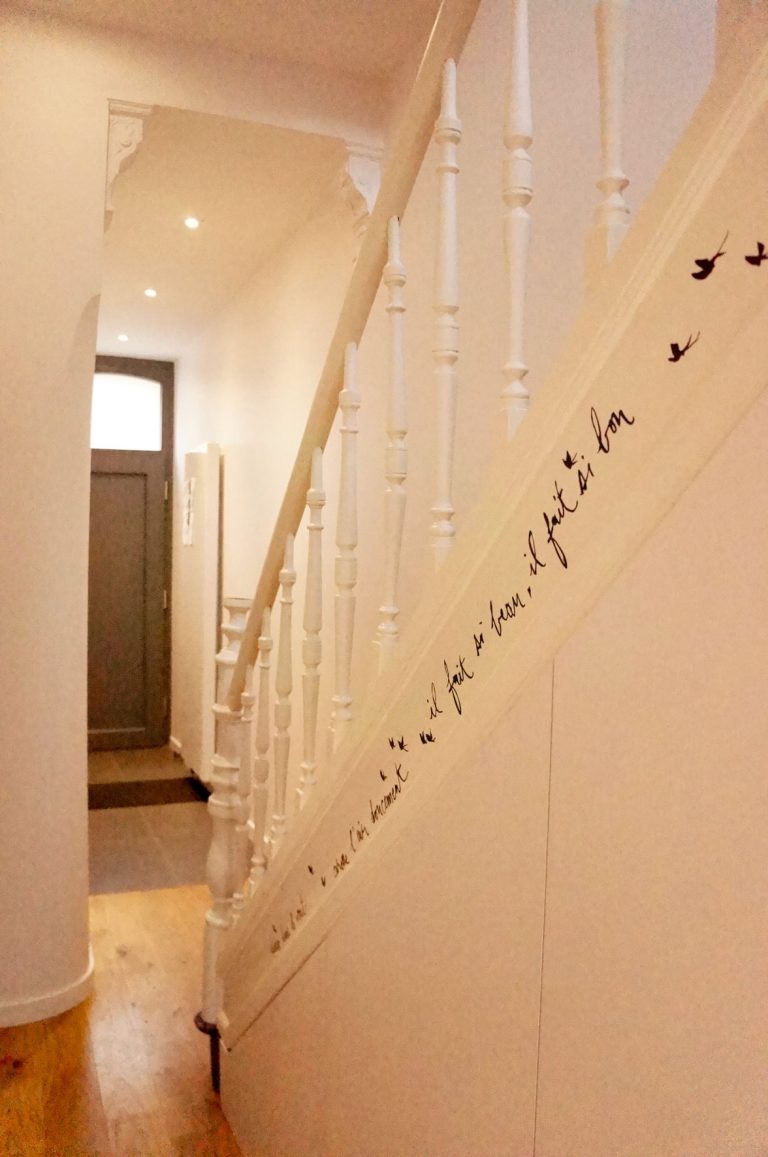 avec l'air doucement il fait si beau, il fait si bon